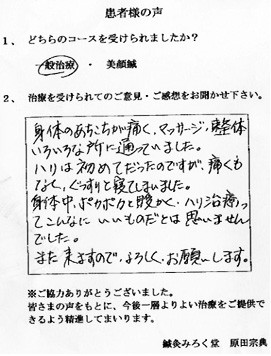 患者様の声
1、 どちらのコースを受けられましたか?
一般治療 ・ 美顔鍼
2、 治療を受けられてのご意見・ご感想をお聞かせ下さい。
身体のあちこちが痛く、マッサージ、整体
いろいろな所に通っていました。
ハリは初めてだったのですが、痛くも
なく、ぐっすりと寝てしまいました。
身体中、ポカポカと暖かく、ハリ治療っ
てこんなに いいものだとは 思いません
でした。
また 来ますので、よろしく、お願いします。
※ご協力ありがとうございました。
皆さまの声をもとに、今後一層よりよい治療をご提供で
きるよう精進してまいります。
鍼灸みろく堂 原田宗典